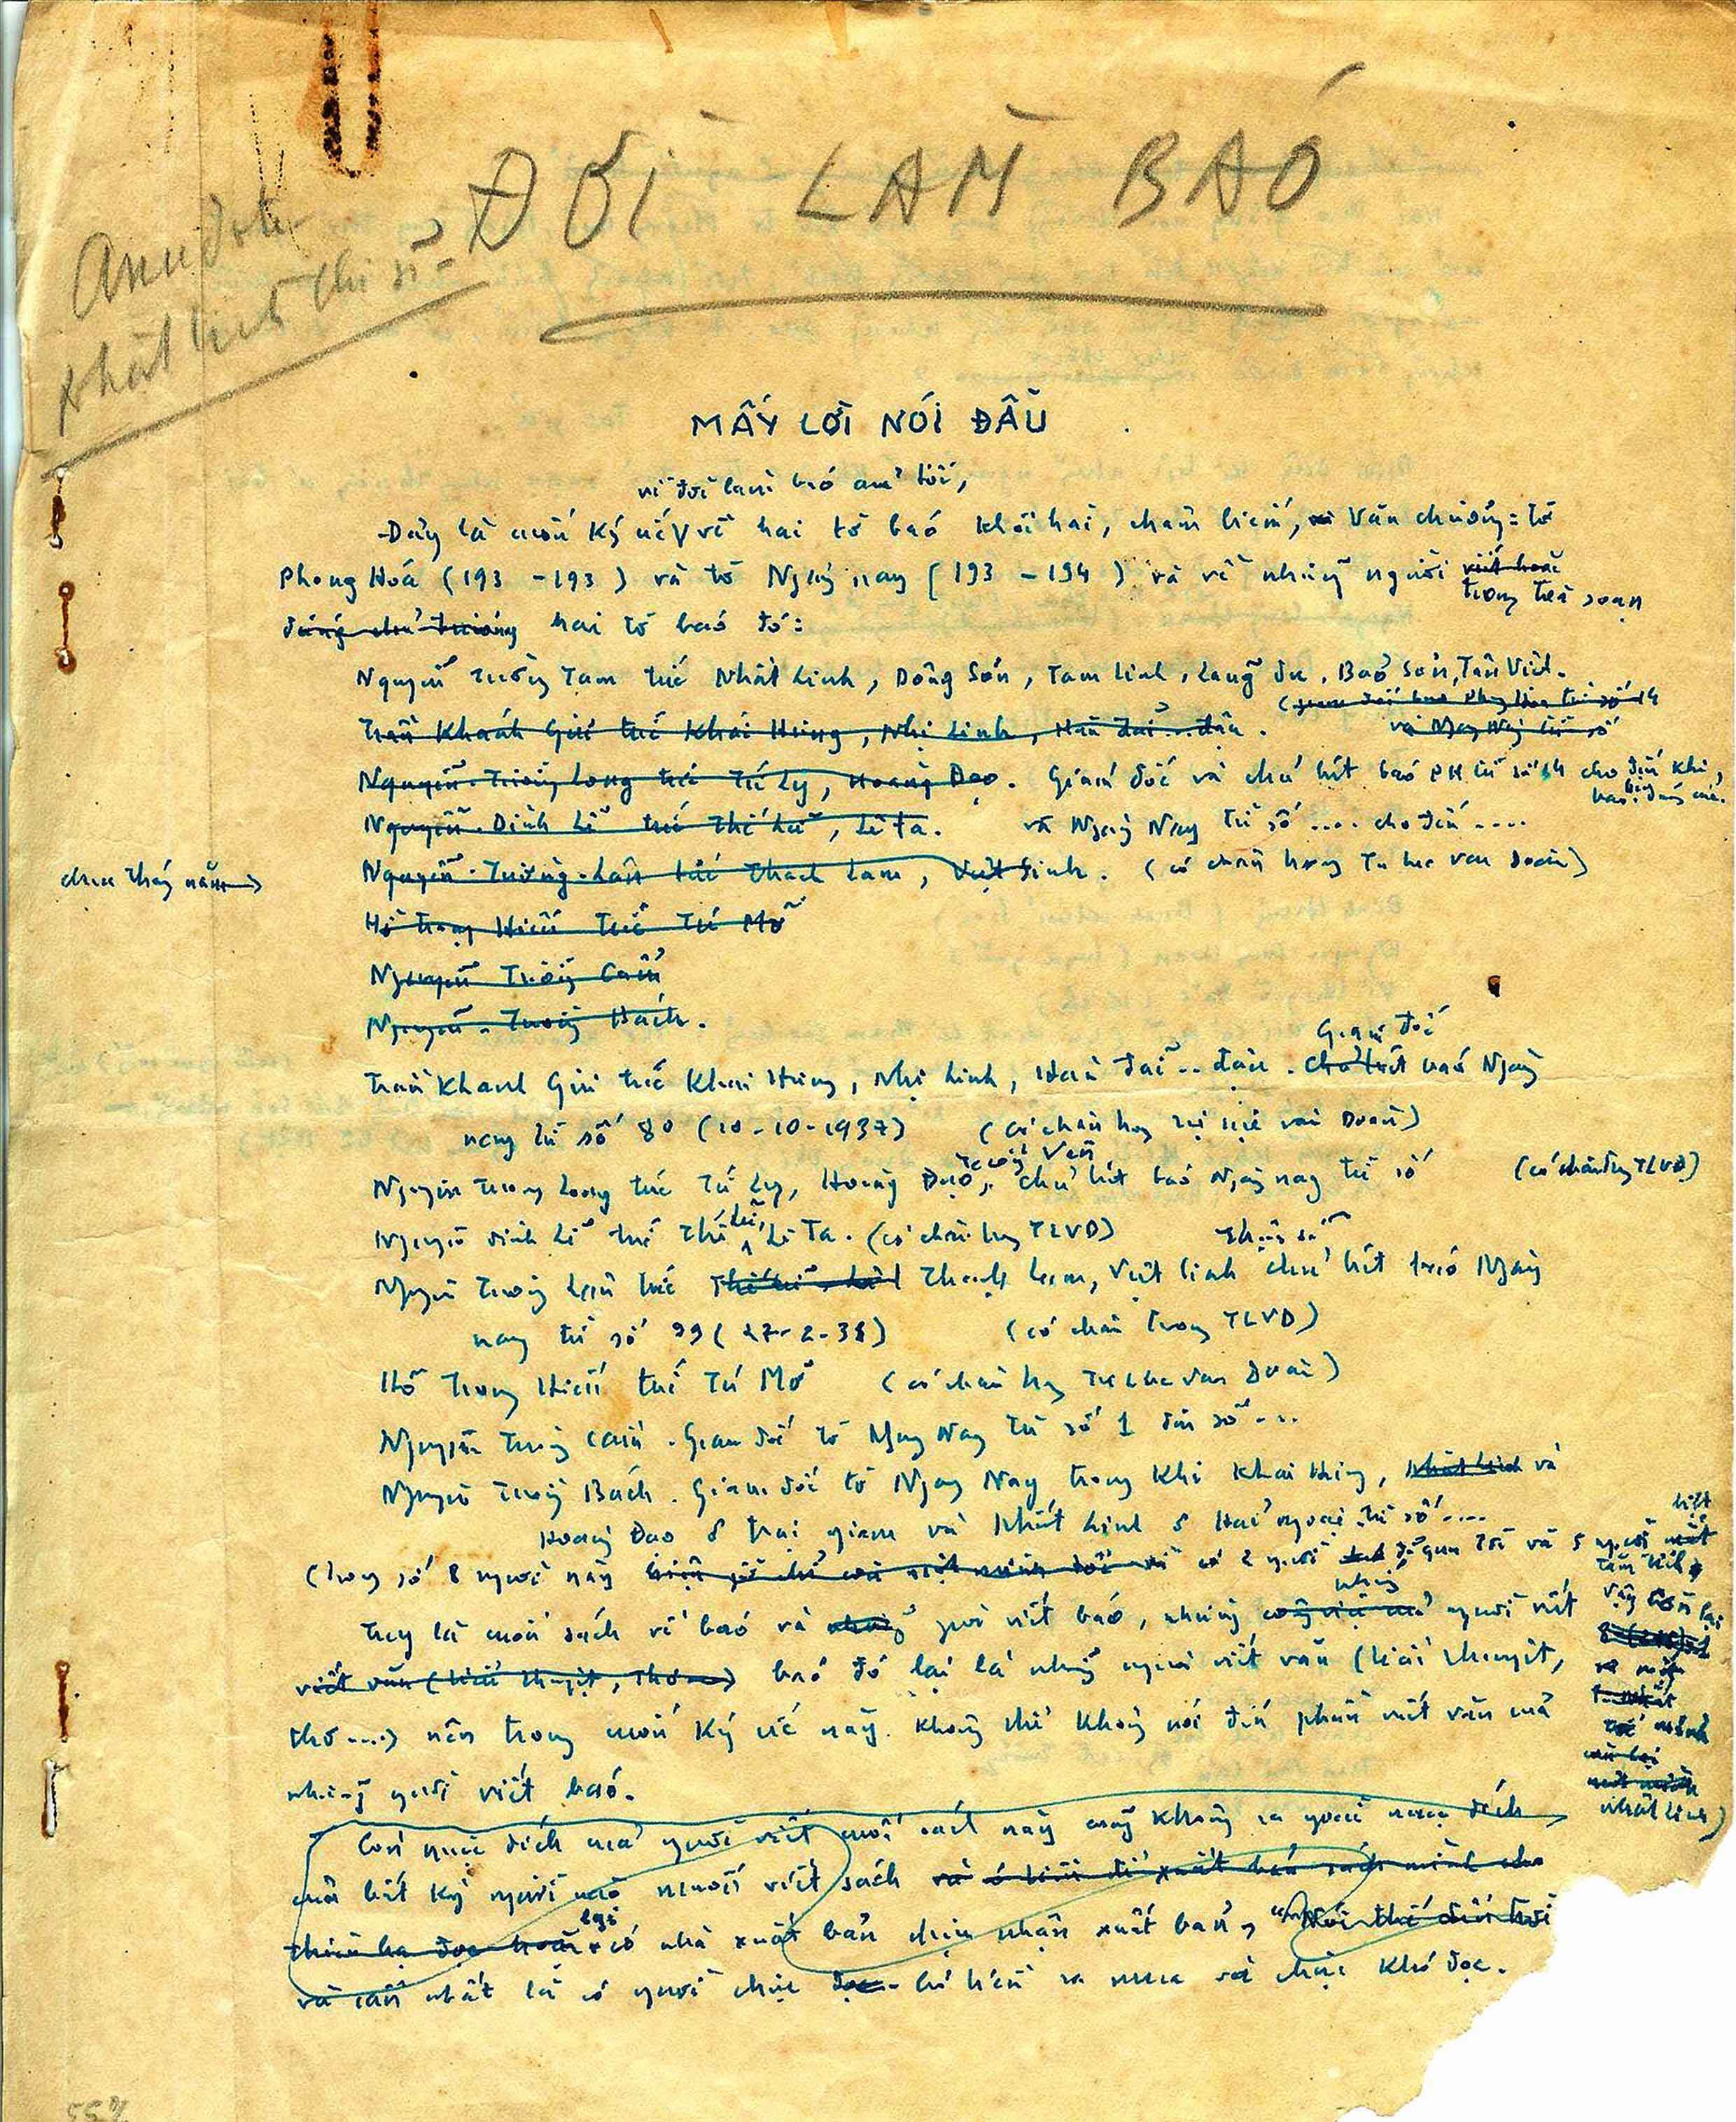 ĐỜI LÀM BÁO
Nhất Linh thi sĩ
MẤY LỜI NÓI ĐẦU
về đời làm báo của tôi,
Đây là cuốn ký ức về hai tờ báo khôi hài, châm biếm, và văn chương: tờ
Phong Hoá (193 -193 ) và tờ Ngày nay (193 - 194 ) và về những người viết hoặc
trong toà soạn
đứng chủ trương hai tờ báo đó:
Nguyễn Tường Tam tức Nhất Linh, Đông Sơn, Tam Linh, Lãng du, Bảo Sơn, Tân Việt.
Trần Khánh Giư tức Khái Hưng, Nhị Linh, Hàn đãi .. đậu .
và Ngày Nay từ số
Nguyễn Tường Long tức Tứ Ly, Hoàng Đạo. Giám đốc và chủ bút báo PH từ số 14 cho đến khi
Nguyễn Đình Lễ tức Thế Lữ, Lê Ta. và Ngày Nay từ số .... cho đến ....
Nguyễn Tường Lân tức Thạch Lam, Việt Sinh. (có chân trong Tự lực văn đoàn)
chưa thấy năm
Hồ Trọng Hiếu tức Tú Mỡ
Nguyễn Tường Cẩm
Nguyễn Tường Bách.
Giám đốc
Trần Khánh Giư tức Khái Hưng, Nhị Linh, Hàn đãi .. đậu . chủ bút báo Ngày
nay từ số 80 (10-10-1937) (có chân trong tự lực văn Đoàn)
Tường Vân
Nguyễn Tường Long tức Tứ Ly, Hoàng Đạo, chủ bút báo Ngày nay từ số (có chân trong TLVĐ)
Lữ,
Nguyễn đình Lễ tức Thế Lê Ta. (có chân trong TLVĐ)
Nguyễn Tường Lân tức Thạch Lam, Việt Sinh chủ bút báo Ngày
nay từ số 99 (27-2-38) (có chân trong TLVĐ)
Hồ Trọng Hiếu tức Tú Mỡ (có chân trong Tự Lực Văn Đoàn)
Nguyễn Tường Cẩm . Giám đốc tờ Ngày Nay từ số 1 đến số ....
Nguyễn Tường Bách . Giám đốc tờ Ngày Nay trong khi Khái Hưng, Nhất Linh và
Hoàng Đạo ở trại giam và Nhất Linh ở Hải ngoại từ số ....
(trong số 8 người này có 2 người đã qua đời và 5 người mất
biệt
tăm tích
vậy còn lại
Nhất Linh)
những
Tuy là cuốn sách về báo và người viết báo, nhưng người viết
viết văn (tiểu thuyết, thơ ...) báo đó lại là những người viết văn (tiểu thuyết,
thơ ....) nên trong cuốn ký ức này không thể không nói đến phần viết văn của
những người viết báo.
Còn mục đích của người viết cuốn sách này cũng không ra ngoài mục đích
của bất kỳ người nào muốn viết sách và ý kiến để xuất bản sách mình cho
lại
thiên hạ đọc hoặc có nhà xuất bản chịu nhận xuất bản,
và cần nhất là có người chịu bỏ tiền ra mua và chịu khó đọc.